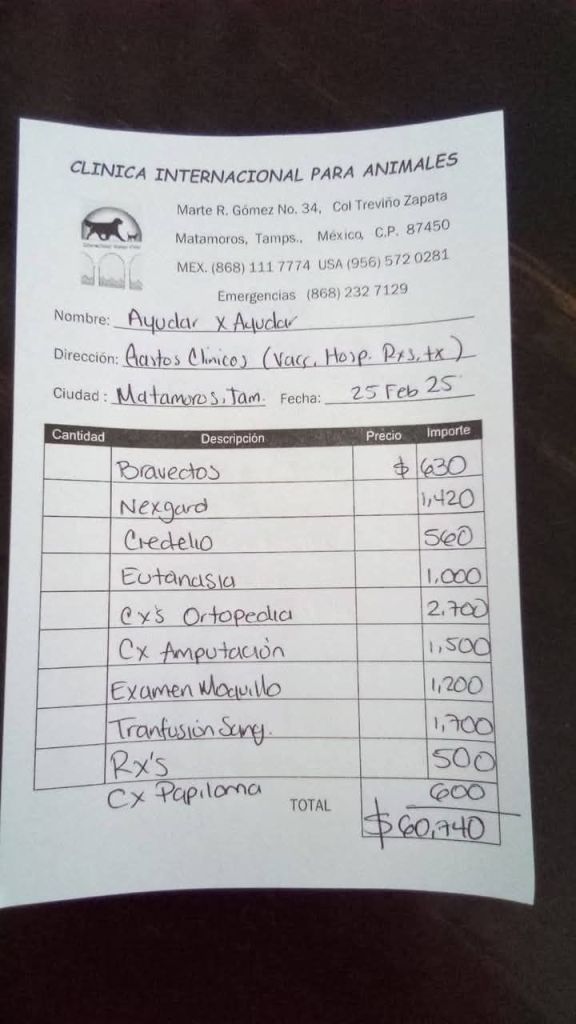 CLINICA INTERNACIONAL PARA ANIMALES
Marte R. Gómez No. 34, Col Treviño Zapata
Matamoros, Tamps., México, C.P. 87450
MEX. (868) 111 7774 USA (956) 572 0281
Emergencias (868) 232 7129
Nombre: Ayudar x Ayudar
Dirección: Gastos Clinicos (Vacc, Hosp. Rxs, tx)
Ciudad: Matamoros, Tam. Fecha: 25 Feb 25
Cantidad Descripción Precio Importe
Bravectos $ 630
Nexgard 1,420
Credelio 560
Eutanasia 1,000
Cx's Ortopedia 2,700
Cx Amputación 1,500
Examen Moquillo 1,200
Tranfusión Sang. 1,700
Rx's 500
Cx Papiloma 600
TOTAL $60,740